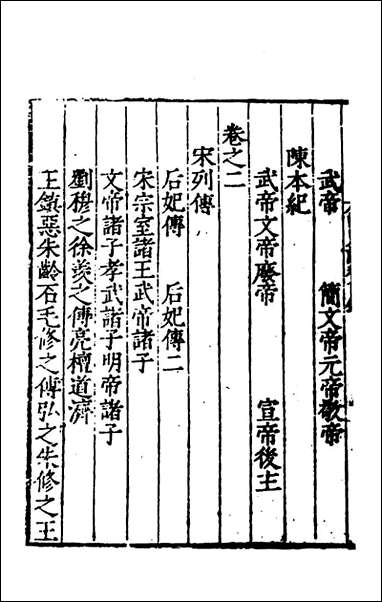 武帝　簡文帝元帝敬帝
陳本紀
武帝文帝廢帝　宣帝後主
卷之二
宋列傳
后妃傳　后妃傳二
宋宗室諸王武帝諸子
文帝諸子孝武諸子明帝諸子
劉穆之徐羨之傅亮檀道濟
王鎮惡朱齡石毛修之傅弘之朱修之王